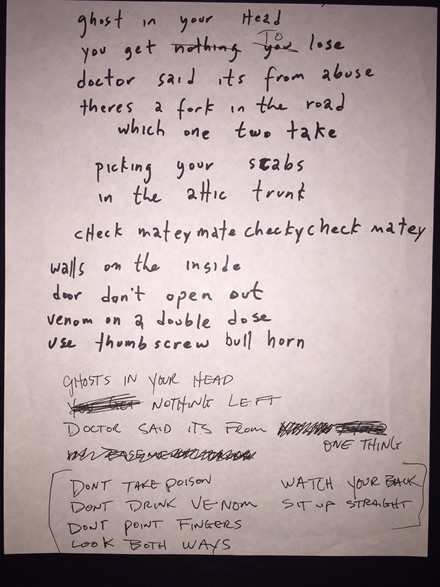 ghost in your Head
you get nothing you TO lose
doctor said its from abuse
theres a fork in the road
which one two take
picking your scabs
in the attic trunk
cHeck matey mate checkycheck matey
walls on the inside
door don't open out
venom on a double dose
use thumbscrew bull horn
GHOSTS IN YOUR HEAD
YOU GET NOTHING LEFT
DOCTOR SAID ITS FROM
ONE THING
DONT TAKE POISON
DONT DRINK VENOM
DONT POINT FINGERS
LOOK BOTH WAYS
WATCH YOUR BACK
SIT UP STRAIGHT